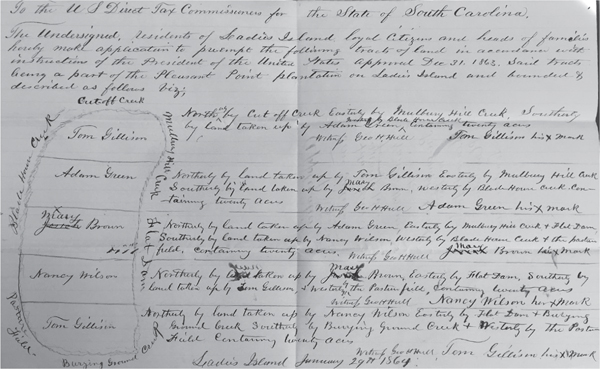 To the U S Direct Tax Commissioners for the State of South Carolina.
The Undersigned, residents of Ladies Island loyal Citizens and heads of families
hereby make application to preempt the following tracts of land in accordance with
instructions of the President of the United States approved Dec 31. 1863. Said tracts
being a part of the Pleasant Point plantation on Ladies Island and bounded &
described as follows viz;
Cut off Creek
Mulbury Hill Creek
Flat Dam
Burying Ground Creek
Pasture Field
Tom Gillison
Adam Green
Mary
Brown
Nancy Wilson
Tom Gillison
Northerly by Cut off Creek Easterly by Mulbury Hill Creek, Southerly
by land taken up by Adam Green, Containing twenty acres
Witness Geo H. Hull Tom Gillison his x mark
Northerly by land taken up by Tom Gillison Easterly by Mulbury Hill Creek
Southerly by Land taken up by Mary Brown, Westerly by Creek Con-
taining twenty acres
Witness Geo H Hull Adam Green his x mark
Northerly by land taken up by Adam Green, Easterly by Mulbury Hill Creek & Flat Dam,
Southerly by land taken up by Nancy Wilson, Westerly by Creek & the pasture
field, containing twenty acres. Witness Geo H Hull Mary Brown his x mark
Northerly by land taken up by Mary Brown, Easterly by Flat Dam, Southerly by
land taken up by Tom Gillison & Westerly by the Pasture field, Containing twenty acres
Witness Geo H. Hull Nancy Wilson his x mark
Northerly by land taken up by Nancy Wilson Easterly by Flat Dam & Burying
Ground Creek Southerly by Burying Ground Creek & Westerly by the Pasture
Field Containing twenty acres
Witness Geo H. Hull Tom Gillison his x mark
Ladies Island January 29th 1864.